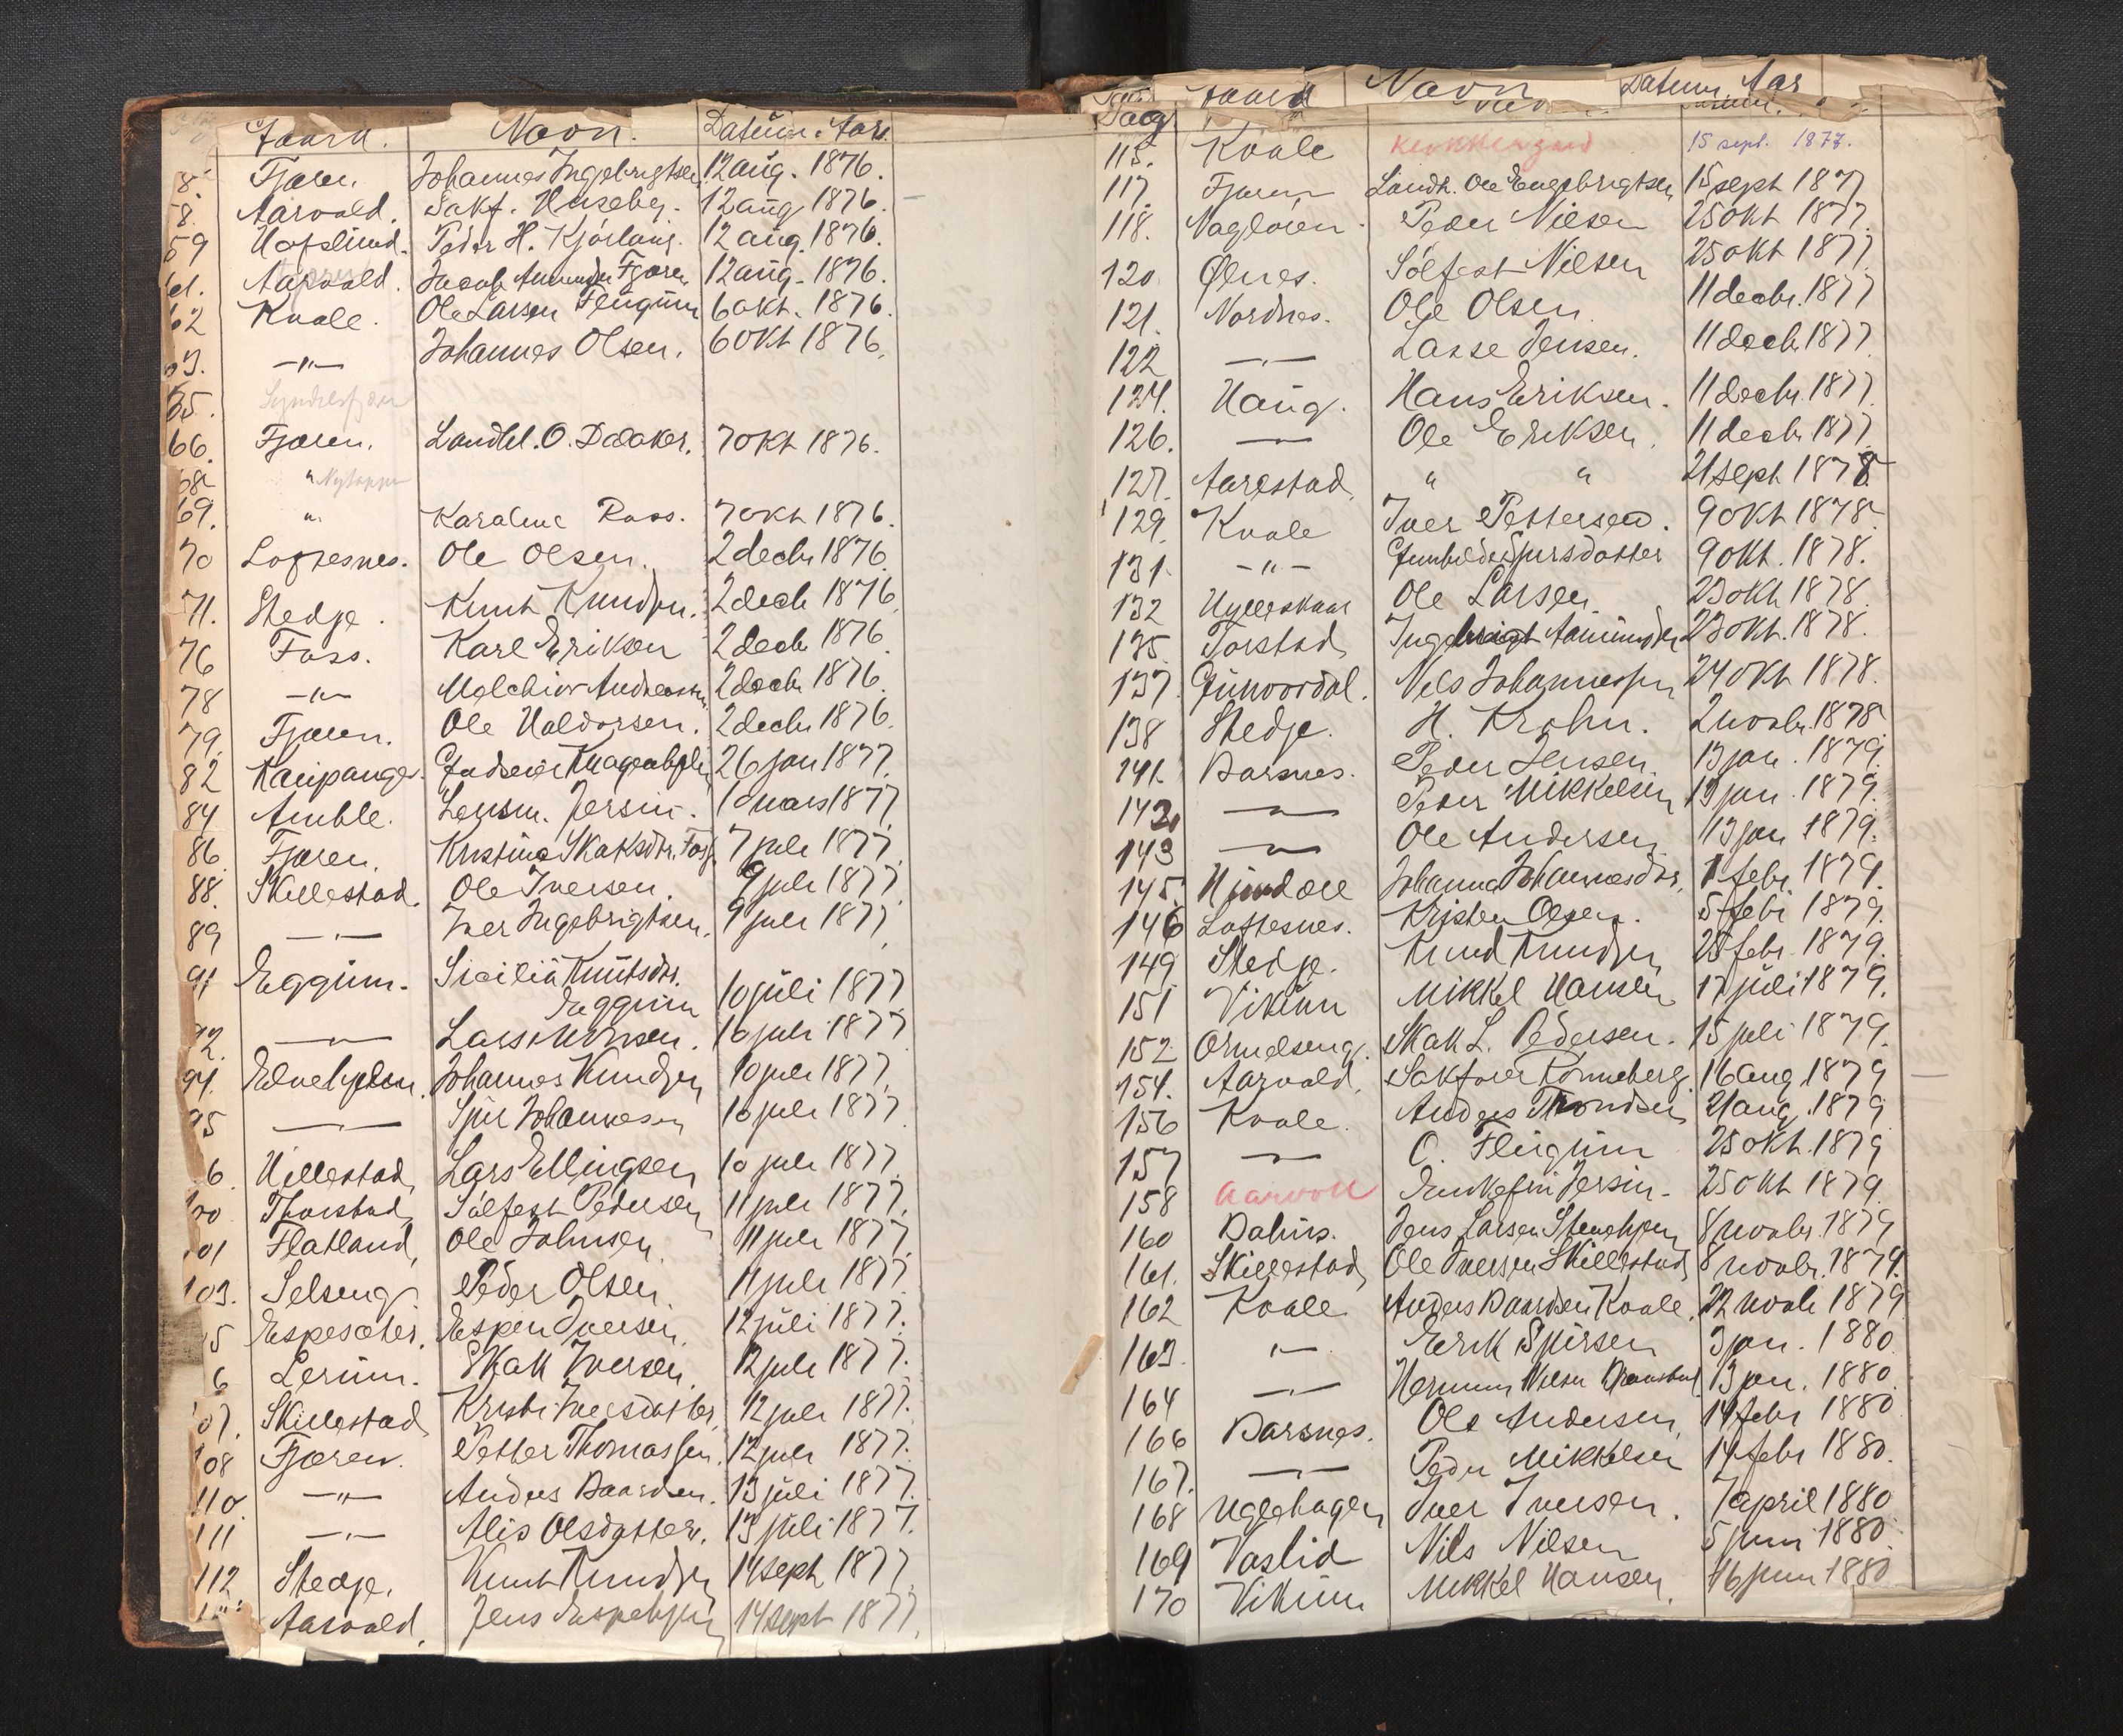 Gaard. Navn. Datum. Aar.
8. Fjæren. Johannes Ingebrigtsen 12 aug. 1876.
8. Aarvold. Sakf. Huseby. 12 aug 1876.
59 Hofslund. Peder H. Kjörlaug. 12 aug. 1876.
61. Aarvold. Jacob Amundsen Fjæren 12 aug. 1876.
62 Kvale. Ole Larsen Flugum 6 okt. 1876.
63. —"— Johannes Olsen. 6 okt 1876.
65.
66. Fjæren. Landhl. O. Dalaker. 7 okt 1876.
68 "
69. " Karoline Ross. 7 okt 1876.
70 Loftesnes. Ole Olsen. 2 decbr 1876.
71. Stedje. Knut Knudsen. 2 decb 1876.
76 Foss. Karl Eriksen 2 decb 1876.
78 —"— Melchior Andreassen 2 decbr 1876.
79. Fjæren. Ole Haldorsen. 2 decbr 1876.
82 Kaupanger. Gudseier Knagenhjelm 26 jan 1877.
84 Amble. Lensm. Jersin. 1 mars 1877.
86 Fjæren. Kristine Skaksdtr. Foss 7 juli 1877.
88. Skillestad. Ole Iversen. 9 juli 1877
89 —"— Iver Ingebrigtsen. 9 juli 1877
91 Eggum. Sicilia Knutsdtr.
Eggum 10 juli 1877
92. —"— Lars Monsen. 10 juli 1877
94. Johannes Knudsen 10 juli 1877.
95 —"— Sjur Johannesen 10 juli 1877
6. Hillestad Lars Ellingsen 10 juli 1877.
100 Thorstad Sölfest Pedersen 11 juli 1877.
101 Flatland, Ole Johnsen 11 juli 1877.
103. Selseng. Peder Olsen. 11 juli 1877
5 Espesæter. Espen Iversen. 12 juli 1877.
6 Lerum. Skak Iversen. 12 juli 1877.
107. Skillestad Kristi Iversdatter 12 juli 1877.
108 Fjæren. Petter Thomassen. 12 juli 1877.
110. —"— Anders Baardsen. 13 juli 1877.
111 —"— Alis Olsdatter. 13 juli 1877.
112 Stedje. Knut Knudsen 14 sept 1877
Aarvold. Jens 14 sept 1877.
Gaard Navn Datum Aar
Pag
115. Kvale Klokkergard 15 sept. 1877.
117. Fjæren Landh. Ole Engebrigtsen 15 sept 1877
118. Nagløien. Peder Nilsen 25 okt 1877.
120. Ølnes. Sölfest Nilsen 25 okt 1877
121. Nordnes. Ole Olsen. 11 decbr. 1877
122 —"— Lasse Jensen. 11 decb 1877
124. Haug. Hans Eriksen. 11 decbr. 1877.
126. —"— Ole Eriksen. 11 decbr 1877.
127. Aarestad. " " 21 sept 1878
129. Kvale Iver Pettersen. 9 okt 1878.
131. —"— Gunhilde Sjursdatter 9 okt. 1878.
132 Hylleskaar Ole Larsen. 23 okt 1878.
135. Torstad Ingebrigt Aamundsen 23 okt. 1878.
137. Gunvordal. Nels Johannessen 24 okt 1878.
138 Stedje. H. Krohn. 2 novbr. 1878
141. Barsnes. Peder Jensen. 13 jan. 1879.
142. —"— Peder Mikkelsen 13 jan. 1879.
143 —"— Ole Andersen 13 jan 1879.
145. Hundere Johanna Johannesdtr. 1 febr. 1879.
146 Loftesnes. Kristen Olsen. 5 febr 1879.
149 Stedje. Knud Knudsen 25 febr. 1879.
151 Vikum Mikkel Hansen 17 juli 1879.
152 Ormelseng. Skak L. Pedersen. 15 juli 1879.
154. Aarvold. Sakfører Rönneberg. 16 aug 1879
156 Kvale. Anders Throndsen 21 aug. 1879
157 —"— O. Flugum 25 okt. 1879
158 Aarvoll Enkefru Jersin. 25 okt 1879.
160 Dahus. Jens Larsen Stenehjem 8 novbr. 1879
161. Skillestad, Ole Iversen Skillestad 8 novbr. 1879.
162 Kvale Anders Baardsen Kvale. 22 novb 1879
163. —"— Eerik Sjursen 3 jan. 1880.
164 —"— Herman Nilsen 13 jan. 1880.
166 Barsnes. Ole Andersen 14 febr 1880
167. —"— Peder Mikkelsen 14 febr 1880.
168 Uglehagen Iver Iversen. 7 april 1880
169 Vaslid Nils Nilsen 5 juni 1880.
170 Vikum Mikkel Hansen. 16 juni 1880